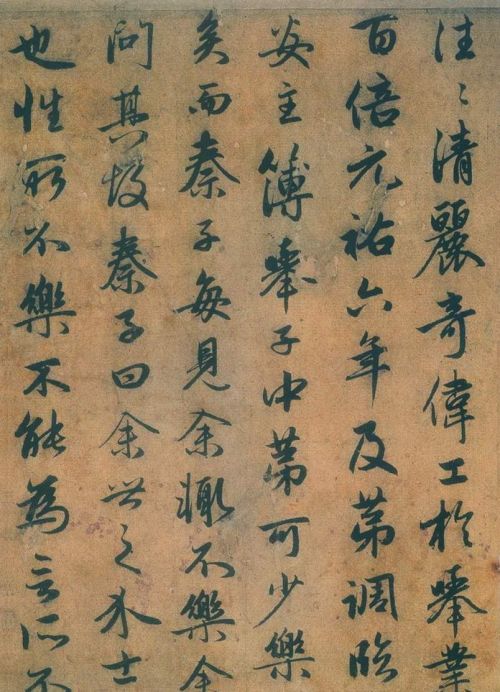 往々清麗奇偉工於舉業
百倍元祐六年及苐調臨
安主簿舉子中苐可少樂
矣而秦子每見余輙不樂余
問其故秦子曰余世之介士
也性所不樂不能為言所不